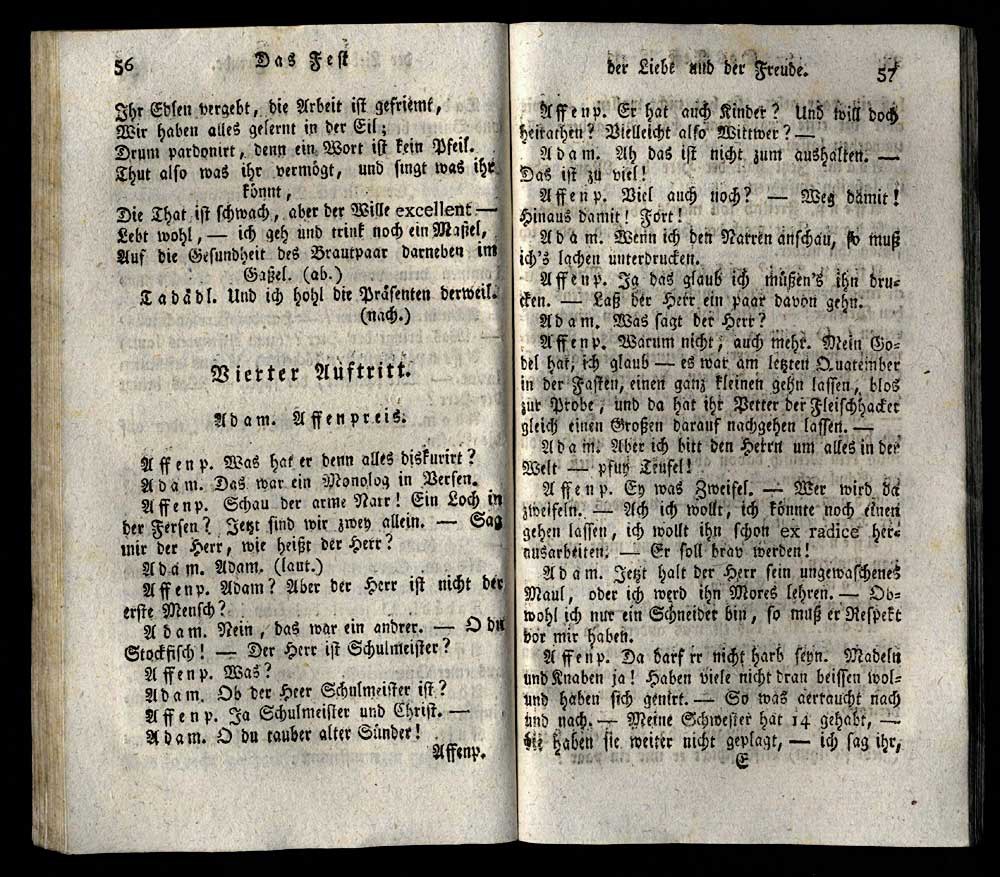 56
Das Fest
Ihr Edlen vergebt, die Arbeit ist gefriemt,
Wir haben alles gelernt in der Eil;
Drum pardonirt, denn ein Wort ist kein Pfeil.
Thut also was ihr vermögt, und singt was ihr
könnt,
Die That ist schwach, aber der Wille excellent —
Lebt wohl, — ich geh und trink noch ein Maßel,
Auf die Gesundheit des Brautpaar darneben im
Gaßel. (ab.)
Tadädl. Und ich hohl die Präsenten derweil.
(nach.)
Vierter Auftritt.
Adam. Affenpreis.
Affenp. Was hat er denn alles diskurirt?
Adam. Das war ein Monolog in Versen.
Affenp. Schau der arme Narr! Ein Loch in
der Fersen? Jetzt sind wir zwey allein. — Sag
mir der Herr, wie heißt der Herr?
Adam. Adam. (laut.)
Affenp. Adam? Aber der Herr ist nicht der
erste Mensch?
Adam. Nein, das war ein andrer. — O du
Stockfisch! — Der Herr ist Schulmeister?
Affenp. Was?
Adam. Ob der Heer Schulmeister ist?
Affenp. Ja Schulmeister und Christ. —
Adam. O du tauber alter Sünder!
Affenp.
der Liebe und der Freude.
57
Affenp. Er hat auch Kinder? Und will doch
heirathen? Vielleicht also Wittwer? —
Adam. Ah das ist nicht zum aushalten. —
Das ist zu viel!
Affenp. Viel auch noch? — Weg damit!
Hinaus damit! Fort!
Adam. Wenn ich den Narren anschau, so muß
ich's lachen unterdrucken.
Affenp. Ja das glaub ich müßen's ihn dru-
cken. — Laß der Herr ein paar davon gehn.
Adam. Was sagt der Herr?
Affenp. Warum nicht, auch mehr. Mein Go-
del hat, ich glaub — es war am letzten Quatember
in der Fasten, einen ganz kleinen gehn lassen, blos
zur Probe, und da hat ihr Vetter der Fleischhacker
gleich einen Großen darauf nachgehen lassen. —
Adam. Aber ich bitt den Herrn um alles in der
Welt — pfuy Teufel!
Affenp. Ey was Zweifel. — Wer wird da
zweifeln. — Ach ich wollt, ich könnte noch einen
gehen lassen, ich wollt ihn schon ex radice her-
ausarbeiten. — Er soll brav werden!
Adam. Jetzt halt der Herr sein ungewaschenes
Maul, oder ich werd ihn Mores lehren. — Ob-
wohl ich nur ein Schneider bin, so muß er Respekt
vor mir haben.
Affenp. Da darf er nicht harb seyn. Madeln
und Knaben ja! Haben viele nicht dran beissen wol-
und haben sich genirt. — So was gertaucht nach
und nach. — Meine Schwester hat 14 gehabt, —
die haben sie weiter nicht geplagt, — ich sag ihr,
E